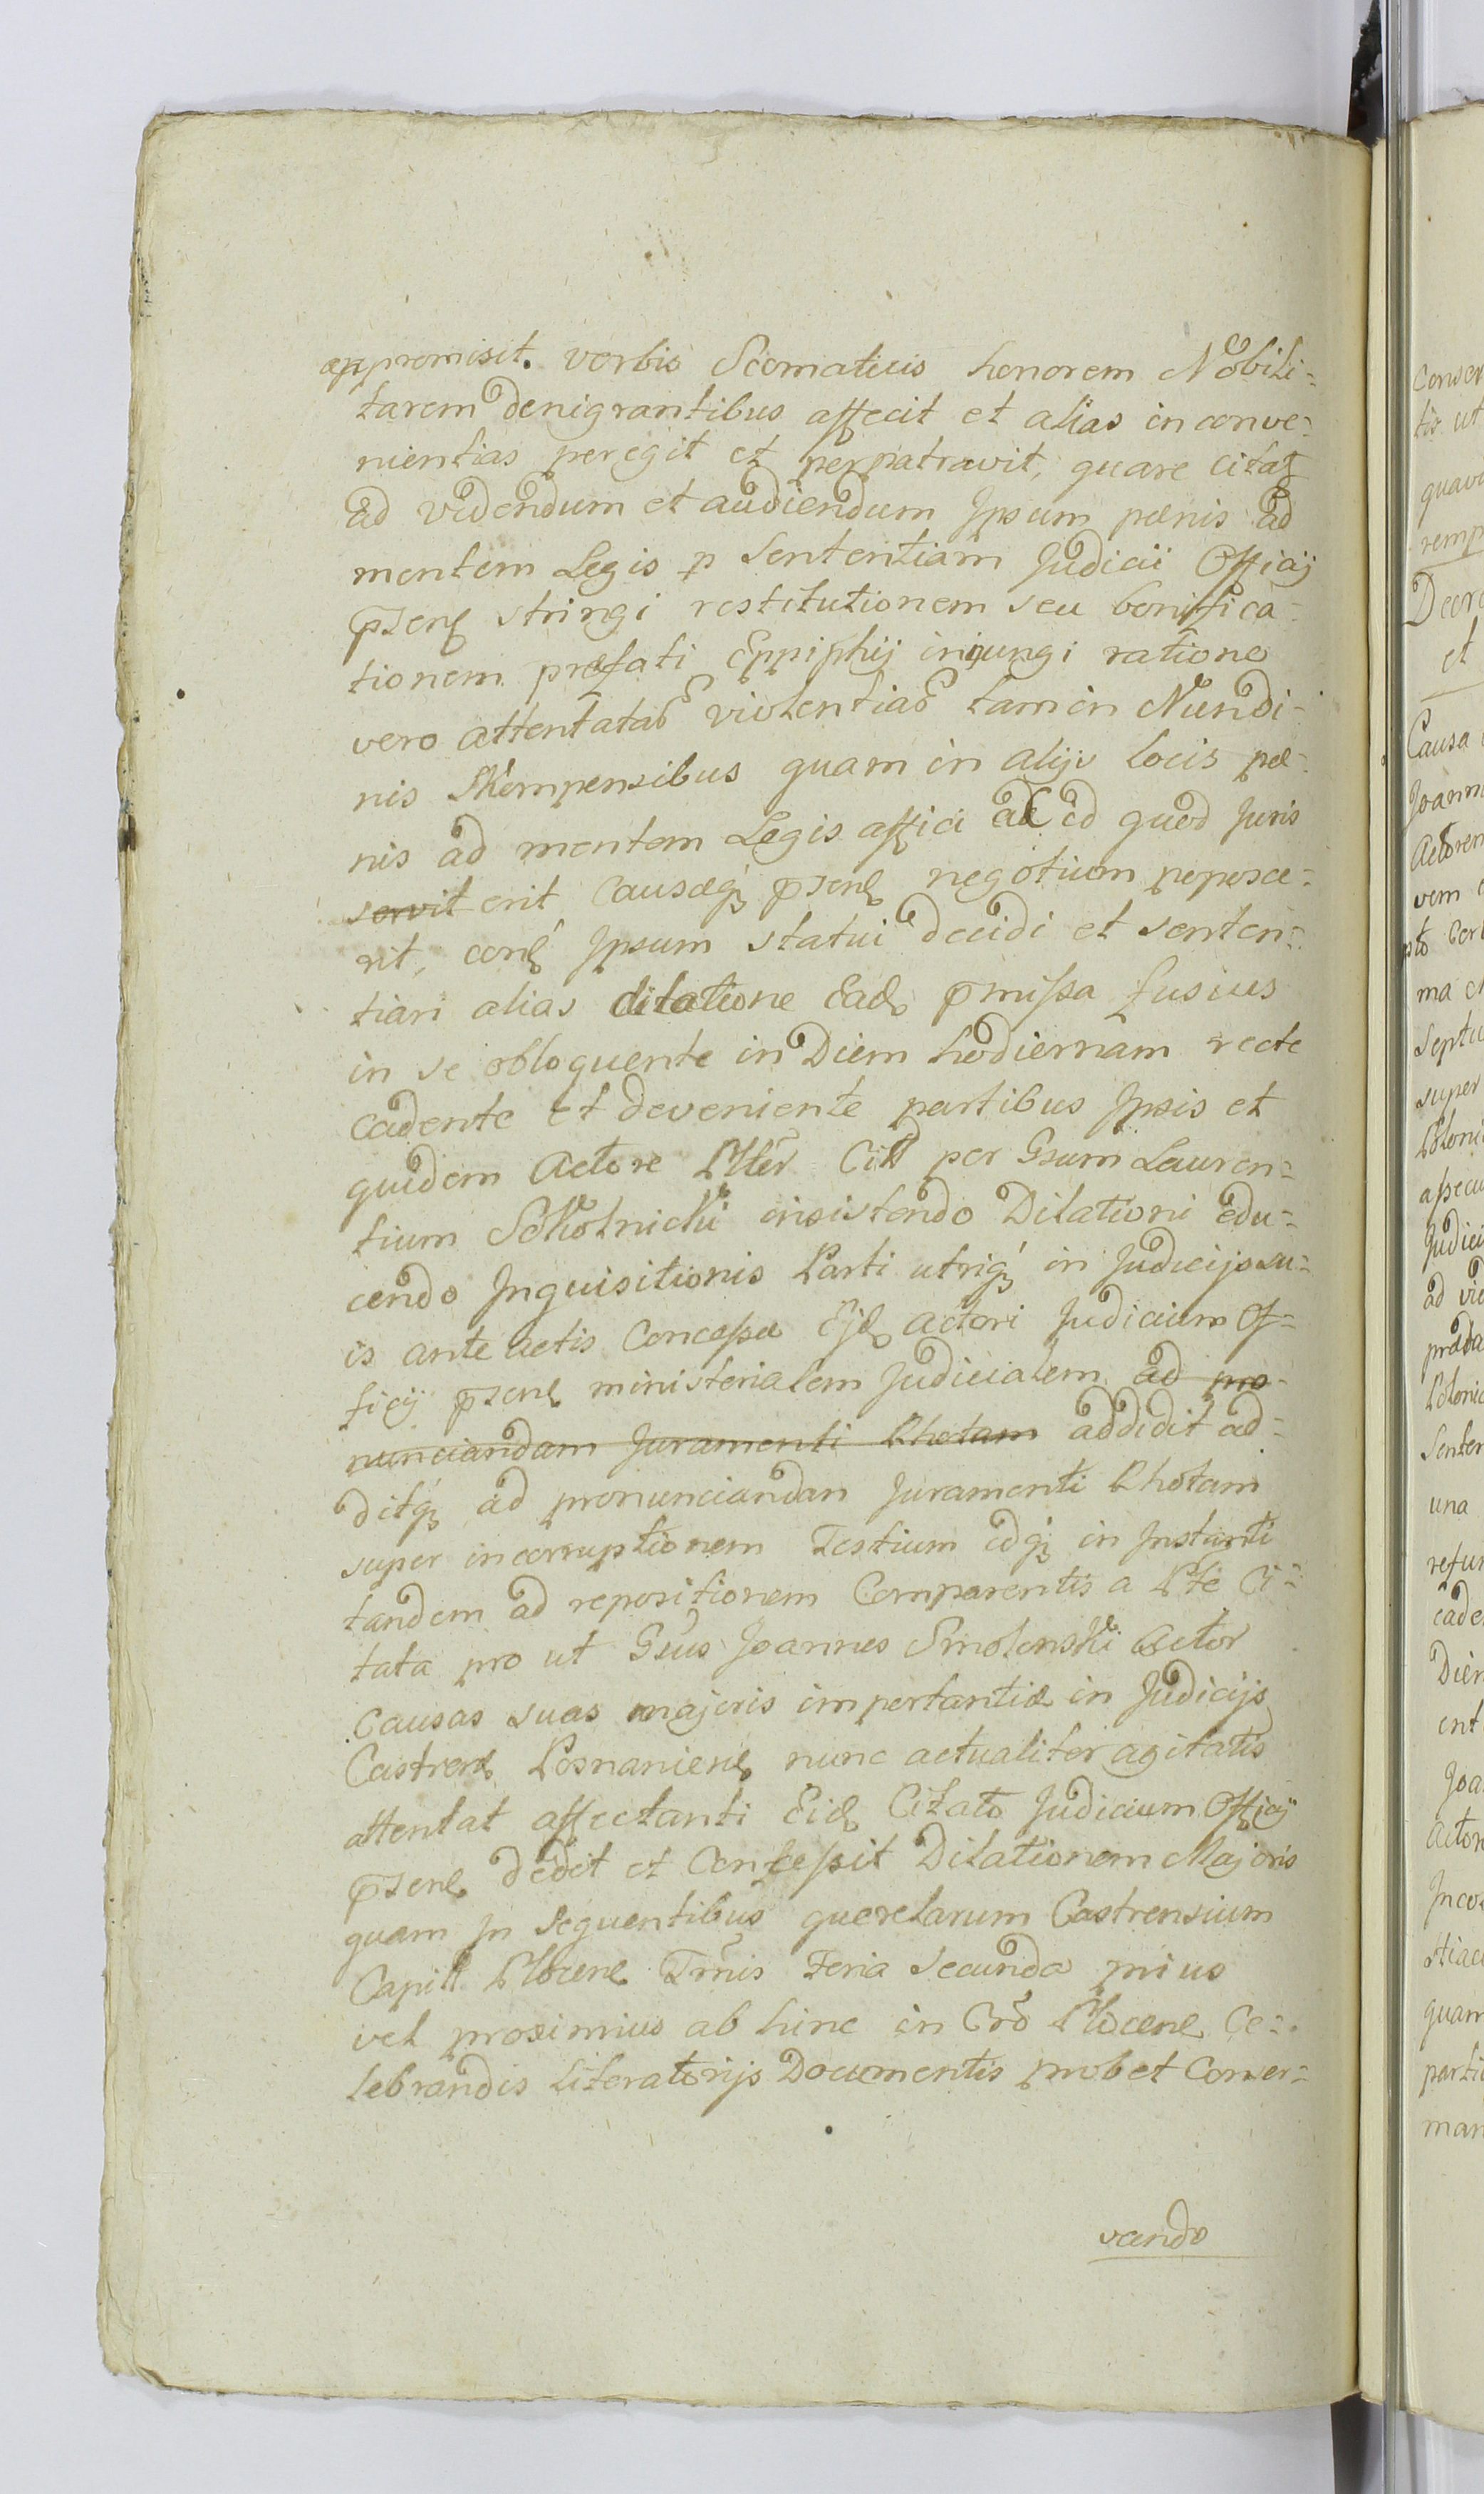 appromisit. verbis Scomaticis honorem Nobili-
tarem denigrantibus affecit et alias inconve-
nientias peregit et perpatravit, quare citat
ad videndum et audiendum Ipsum pænis ad
mentem Legis p Sententiam Judicii Officij
psenę stringi restitutionem seu boniffica-
tionem præfati Eppiphij iniungi ratione
vero attentatae violentiae tam in Nundi-
nis Skempensibus quam in alijs locis pæ-
nis ad mentem Legis affici ac id quod Juris
servit erit Causæq psenę negotium peposce-
rit, conę Ipsum statui decidi et senten-
tiari alias dilatione Eadę pmissa fusius
in se obloquente in Diem hodiernam recte
cadente et deveniente partibus Ipsis et
quidem Actore Plter Citt per Gsum Lauren-
tium Sokolnicki insistendo Dilationi edu-
cendo Inquisitionis Parti utriq in Judicijs su-
is ante actis Concessæ Ejdę actori Judicium Of-
ficij psenę ministerialem Judicialem ad pro-
nunciandam Juramenti Rhotam addidit ad-
ditq ad pronunciandan Juramenti Rhotam
super incorruptionem Testium idq in Instanti
tandem ad repositionem Comparentis a Pte Ci-
tata pro ut Gsus Joannes Smolenski Actor
Causas suas majoris importantiæ in Judicijs
Castrenę Posnanienę nunc actualiter agitatis
attentat affectanti Eidę Citato Judicium Officij
psenę dedit et Concessit Dilationem Majoris
quam in sequentibus querelarum Castrensium
Capitt Plocenę Trmis Feria Secunda prius
vel proximius ab hinc in Cro Plocenę Ce-
lebrandis literatorijs Documentis probet Conser-
vando
Conser
tis ut
quav
remp
Decre
et
Causa
Joann
Actorem
vem
ma
Septu
super
Poloni
assecu
Judici
ad vid
præda
Polonic
Senten
una
refun
eade
Dien
ent
Joa
Actor
quam
parti
man